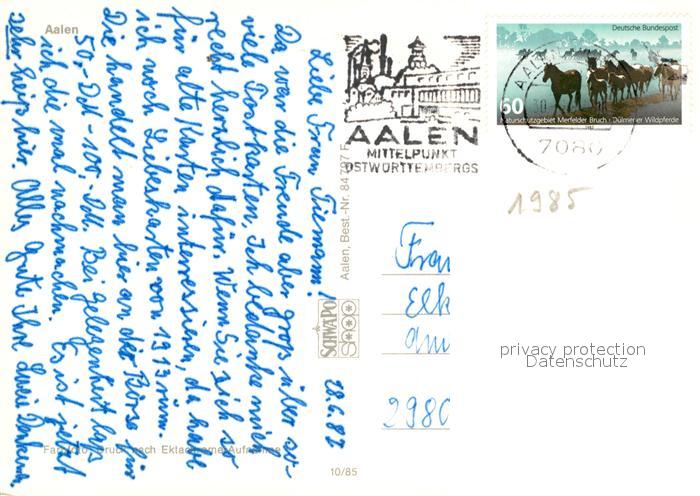 Aalen
Liebe Frau Tiemann!
Da war die Freude aber gros über so-
viele Postkarten, Ich bedanke mich
recht herzlich dafür. Wenn Sie sich so
für alte Karten interressieren, da habe
ich noch Liebeskarten von 1919 rum.
Die handelt man hier an der Börse für
50,-DM - 100,-DM. Bei gelegenheit laß
ich die mal nachmachen. Es ist jetzt
sehr heiß hier. Alles Gute Ihr
28.6.87
AALEN
MITTELPUNKT
OSTWÜRTTEMBERGS
Deutsche Bundespost
60
Naturschutzgebiet Merfelder Bruch · Dülmener Wildpferde
AALEN
7080
1985
Aalen, Best.-Nr. 84 797 F
SCHWAPO
Frau
Elk
Am
2980
privacy protection
Datenschutz
Farbfoto: Druck nach Ektachrome-Aufnahme
10/85